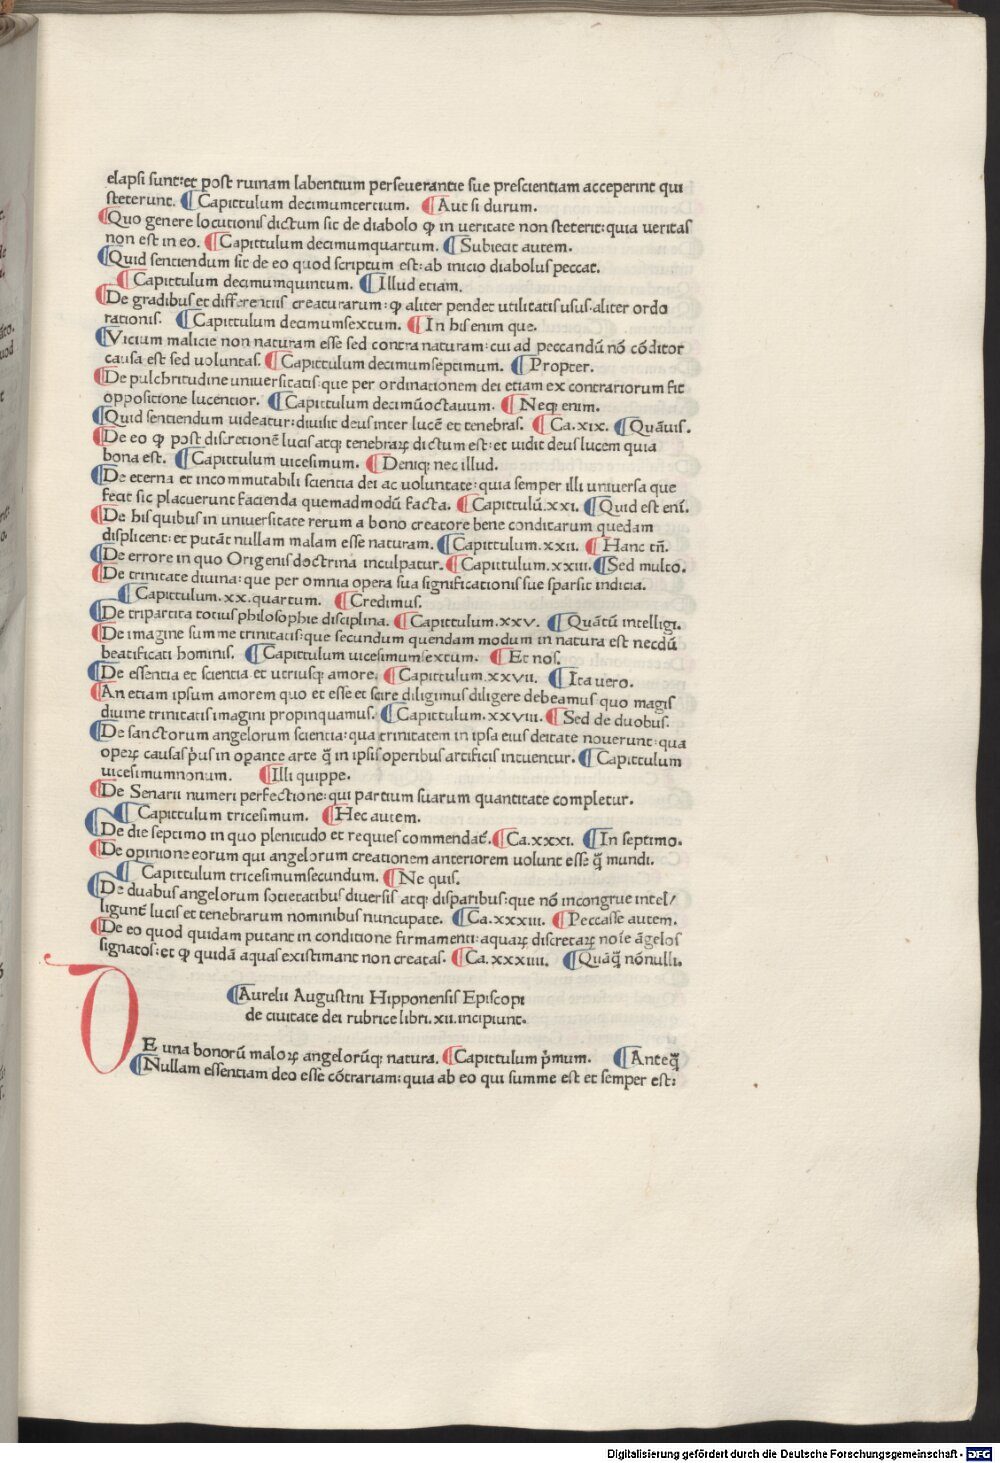 elapsi sunt:et post ruinam labentium perseuerantie sue prescientiam acceperint qui
steterunt. ¶Capittulum decimumtertium. ¶Aut si durum.
¶Quo genere locutionis dictum sit de diabolo ꝙ in ueritate non steterit:quia ueritas
non est in eo. ¶Capittulum decimumquartum. ¶Subiecit autem.
¶Quid sentiendum sit de eo quod scriptum est:ab inicio diabolus peccat.
¶Capittulum decimumquintum. ¶Illud etiam.
¶De gradibus et differentiis creaturarum:ꝙ aliter pendet utilitatis usus.aliter ordo
rationis. ¶Capittulum decimumsextum. ¶In his enim que.
¶Vicium malicie non naturam esse sed contra naturam:cui ad peccandū nō cōditor
causa est sed uoluntas. ¶Capittulum decimumseptimum. ¶Propter.
¶De pulchritudine uniuersitatis:que per ordinationem dei etiam ex contrariorum fit
oppositione lucentior. ¶Capittulum decimūoctauum. ¶Neqꝫ enim.
¶Quid sentiendum uideatur:diuisit deus inter lucē et tenebras. ¶Ca.xix. ¶Quāuis.
¶De eo ꝙ post discretionē lucis atqꝫ tenebraꝝ dictum est:et uidit deus lucem quia
bona est. ¶Capittulum uicesimum. ¶Deniqꝫ nec illud.
¶De eterna et incommutabili scientia dei ac uoluntate:quia semper illi uniuersa que
fecit sic placuerunt facienda quemadmodū facta. ¶Capittulū.xxi. ¶Quid est enī.
¶De his quibus in uniuersitate rerum a bono creatore bene conditarum quedam
displicent:et putāt nullam malam esse naturam. ¶Capittulum.xxii. ¶Hanc tn̄.
¶De errore in quo Origenis doctrina inculpatur. ¶Capittulum.xxiii. ¶Sed multo.
¶De trinitate diuina:que per omnia opera sua significationis sue sparsit indicia.
¶Capittulum.xx.quartum. ¶Credimus.
¶De tripartita totius philosophie disciplina. ¶Capittulum.xxv. ¶Quātū intelligi.
¶De imagine summe trinitatis:que secundum quendam modum in natura est necdū
beatificati hominis. ¶Capittulum uicesimumsextum. ¶Et nos.
¶De essentia et scientia et utriusqꝫ amore. ¶Capittulum.xxvii. ¶Ita uero.
¶An etiam ipsum amorem quo et esse et scire diligimus diligere debeamus quo magis
diuine trinitatis imagini propinquamus. ¶Capittulum.xxviii. ¶Sed de duobus.
¶De sanctorum angelorum scientia:qua trinitatem in ipsa eius deitate nouerunt:qua
operꝫ causas p̄us in opante arte q̄ in ipsis operibus artificis intuentur. ¶Capittulum
uicesimumnonum. ¶Illi quippe.
¶De Senarii numeri perfectione:qui partium suarum quantitate completur.
¶Capittulum tricesimum. ¶Hec autem.
¶De die septimo in quo plenitudo et requies commendat᷑. ¶Ca.xxxi. ¶In septimo.
¶De opinione eorum qui angelorum creationem anteriorem uolunt esse q̄ mundi.
¶Capittulum tricesimumsecundum. ¶Ne quis.
¶De duabus angelorum societatibus diuersis atqꝫ disparibus:que nō incongrue intel/
ligunt᷑ lucis et tenebrarum nominibus nuncupate. ¶Ca.xxxiii. ¶Peccasse autem.
¶De eo quod quidam putant in conditione firmamenti:aquaꝝ discretaꝝ noīe āgelos
signatos:et ꝙ quidā aquas existimant non creatas. ¶Ca.xxxiiii. ¶Quāq̄ nōnulli.
¶Aurelii Augustini Hipponensis Episcopi
de ciuitate dei rubrice libri.xii.incipiunt.
DE una bonorū maloꝝ angelorūqꝫ natura. ¶Capittulum p̄mum. ¶Anteq̄
¶Nullam essentiam deo esse cōtrariam:quia ab eo qui summe est et semper est:
Digitalisierung gefördert durch die Deutsche Forschungsgemeinschaft - DFG